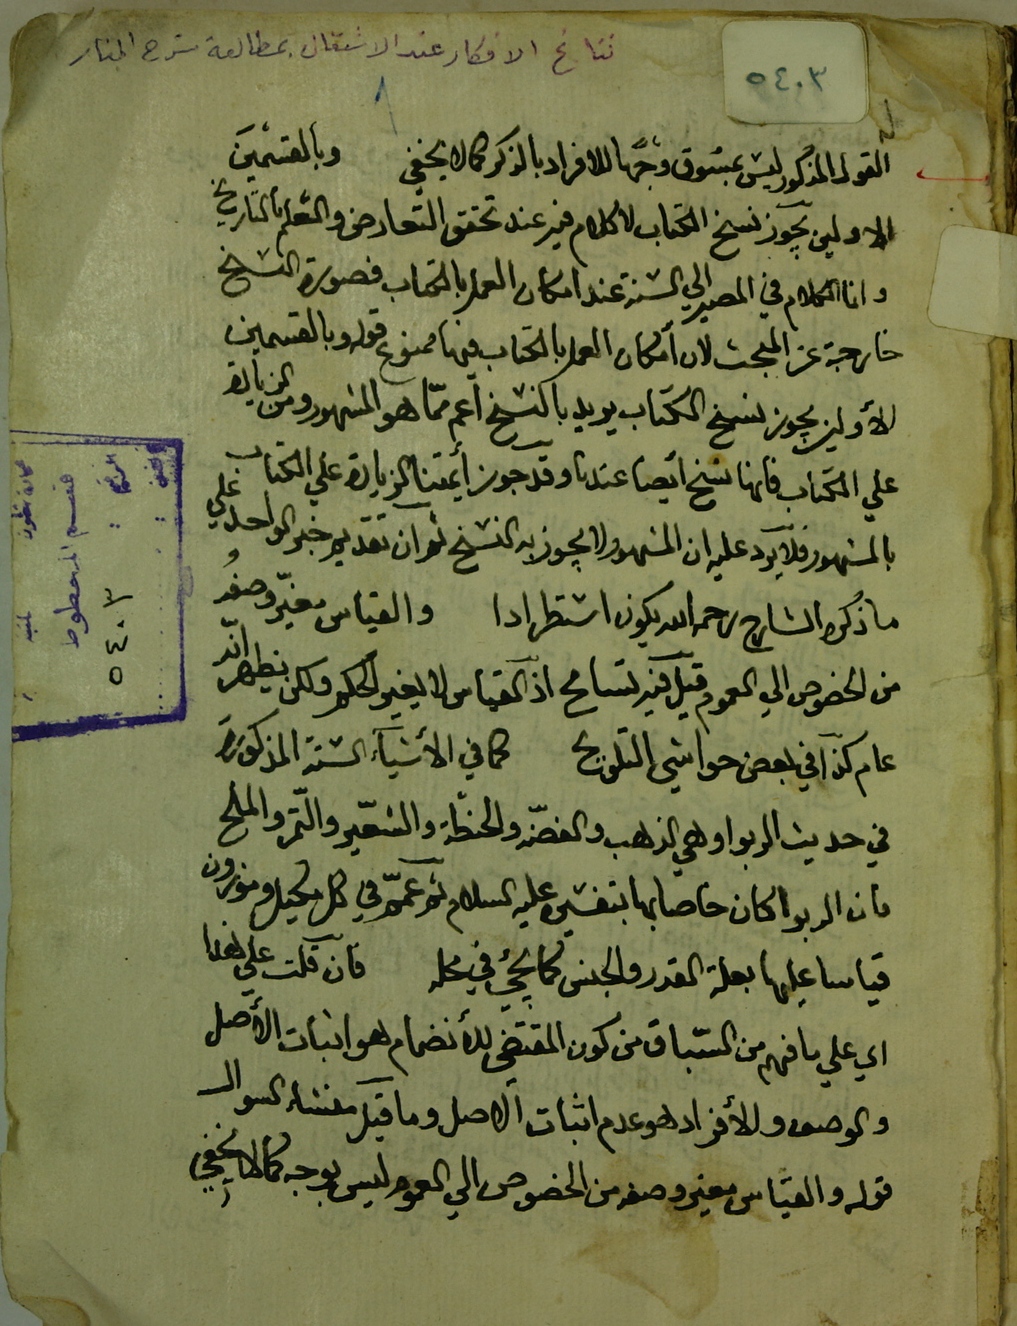 نتائج الافكار عند الاشتغال بمطالعة شرح المنار
٥٤٠٣
القول المذكور ليس بمسوق وجها للافراد بالذكر كما لا يخفى وبالقسمين
الاولين يجوز نسخ الكتاب لا كلام فيه عند تحقق التعارض والعلم بالتاريخ
وانما الكلام في المصير الي السنة عند امكان العمل بالكتاب فصورة النسخ
خارجة عن المبحث لان امكان العمل بالكتاب فيها ممنوع قوله وبالقسمين
الأولين يجوز نسخ الكتاب يريد بالنسخ أعم مما هو المشهور ومن الزيادة
علي الكتاب فانها نسخ ايضا عندنا وقد جوز أئمتنا الزيادة علي الكتاب
بالمشهور فلا يرد عليه ان المشهور لا يجوز به النسخ ثم ان تقديم خبر الواحد علي
ما ذكره الشارح رحمه الله يكون استطرادا والقياس مغير وصفه
من الخصوص الي العموم قيل فيه تسامح اذ القياس لا يغير الحكم ولكن يظهر انه
عام كذا في بعض حواشي التلويح كما في الأشياء الستة المذكورة
في حديث الربوا وهي الذهب والفضة والحنطة والشعير والتمر والملح
فان الربوا كان خاصا بها بتفسيره عليه السلام ثم عمم في كل مكيل وموزون
قياسا عليها بعلة القدر والجنس كما يجئ في محله فان قلت علي هذا
اي علي ما فهم من السباق من كون المقتضي للأنضمام هو اثبات الأصل
والوصف وللأفراد هو عدم اثبات الاصل وما قيل منشاء السوال
قوله والقياس مغير وصفه من الخصوص الي العموم ليس بوجه كما لا يخفي
قسم المخطوط
٥٤٠٣